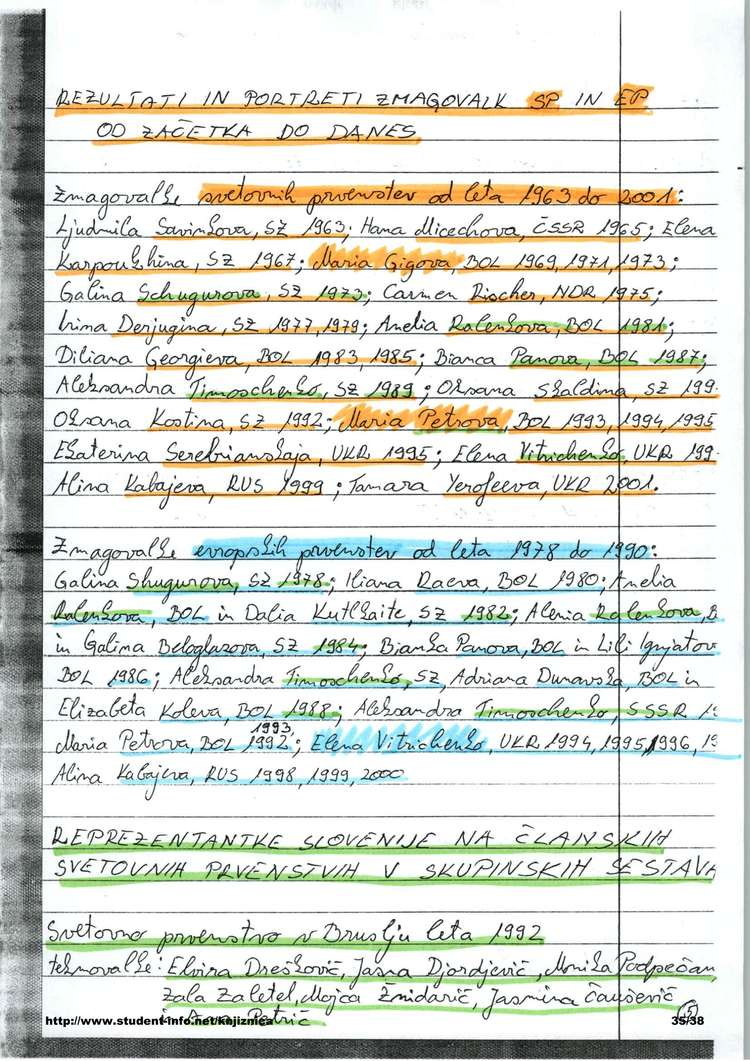 REZULTATI IN PORTRETI ZMAGOVALK SP IN EP
OD ZAČETKA DO DANES
Zmagovalke svetovnih prvenstev od leta 1963 do 2001:
Ljudmila Savinkova, SZ 1963; Hana Micechova, ČSSR 1965; Elena
Karpoukhina, SZ 1967; Maria Gigova, BOL 1969, 1971, 1973;
Galina Schugurova, SZ 1973; Carmen Rischer, NDR 1975;
Irina Derjugina, SZ 1977, 1979; Anelia Ralenkova, BOL 1981;
Diliana Georgieva, BOL 1983, 1985; Bianca Panova, BOL 1987;
Aleksandra Timoschenko, SZ 1989; Oksana Skaldina, SZ 199
Oksana Kostina, SZ 1992; Maria Petrova, BOL 1993, 1994, 1995
Ekaterina Serebrianskaja, UKR 1995; Elena Vitrichenko, UKR 199
Alina Kabajeva, RUS 1999; Tamara Yerofeeva, UKR 2001.
Zmagovalke evropskih prvenstev od leta 1978 do 1990:
Galina Shugurova, SZ 1978; Iliana Raeva, BOL 1980; Anelia
Ralenkova, BOL in Dalia Kutkaite, SZ 1982; Alenia Ralenkova, B
in Galina Beloglazova, SZ 1984; Bianka Panova, BOL in Lili Ignjatov
BOL 1986; Aleksandra Timoschenko, SZ, Adriana Dunavska, BOL in
Elizabeta Koleva, BOL 1988; Aleksandra Timoschenko, SSSR 19
1993,
Maria Petrova, BOL 1992; Elena Vitrichenko, UKR 1994, 1995, 1996, 19
Alina Kabajeva, RUS 1998, 1999, 2000
REPREZENTANTKE SLOVENIJE NA ČLANSKIH
SVETOVNIH PRVENSTVIH V SKUPINSKIH SESTAVA
Svetovno prvenstvo v Bruslju leta 1992
tekmovalke: Elvira Dreškovič, Jasna Djordjevič, Monika Podpečan,
Zala Zaletel, Mojca Žnidarič, Jasmina Čauševič
Petrič
5
http://www.student-info.net/knjiznica
35/38